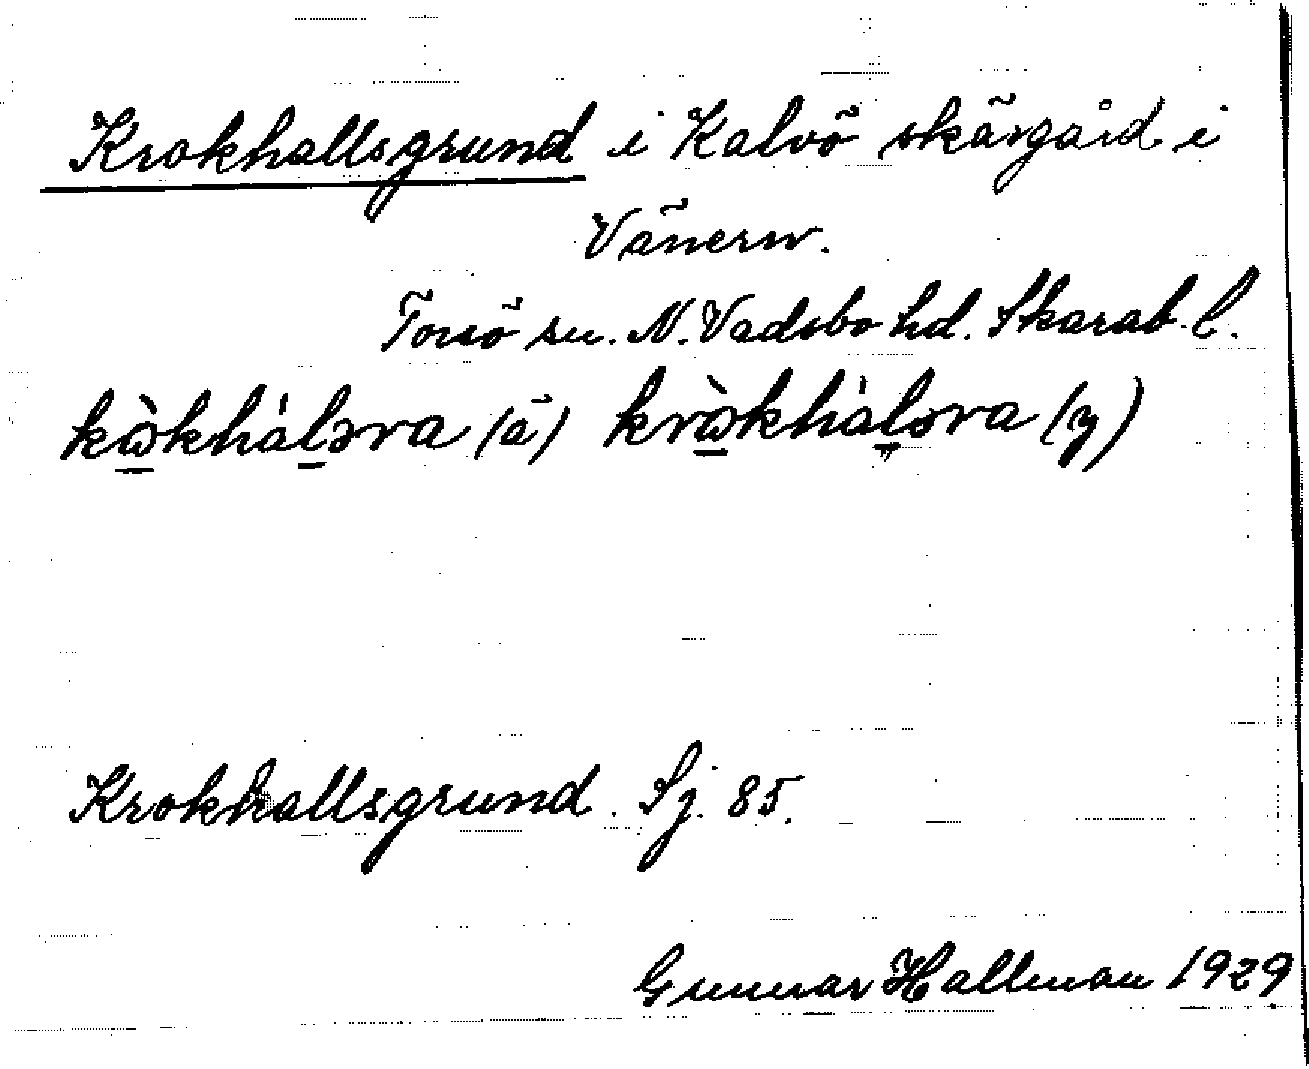 Krokhallsgrund i Kalvö skärgård i
Vänern.
Torsö sn. N. Vadsbo hd. Skarab. l.
kὼ̱khàḻəra (ä) krὼ̱khàḻəra (y)
Krokhallsgrund. Sj. 85.
Gunnar Hallman 1929